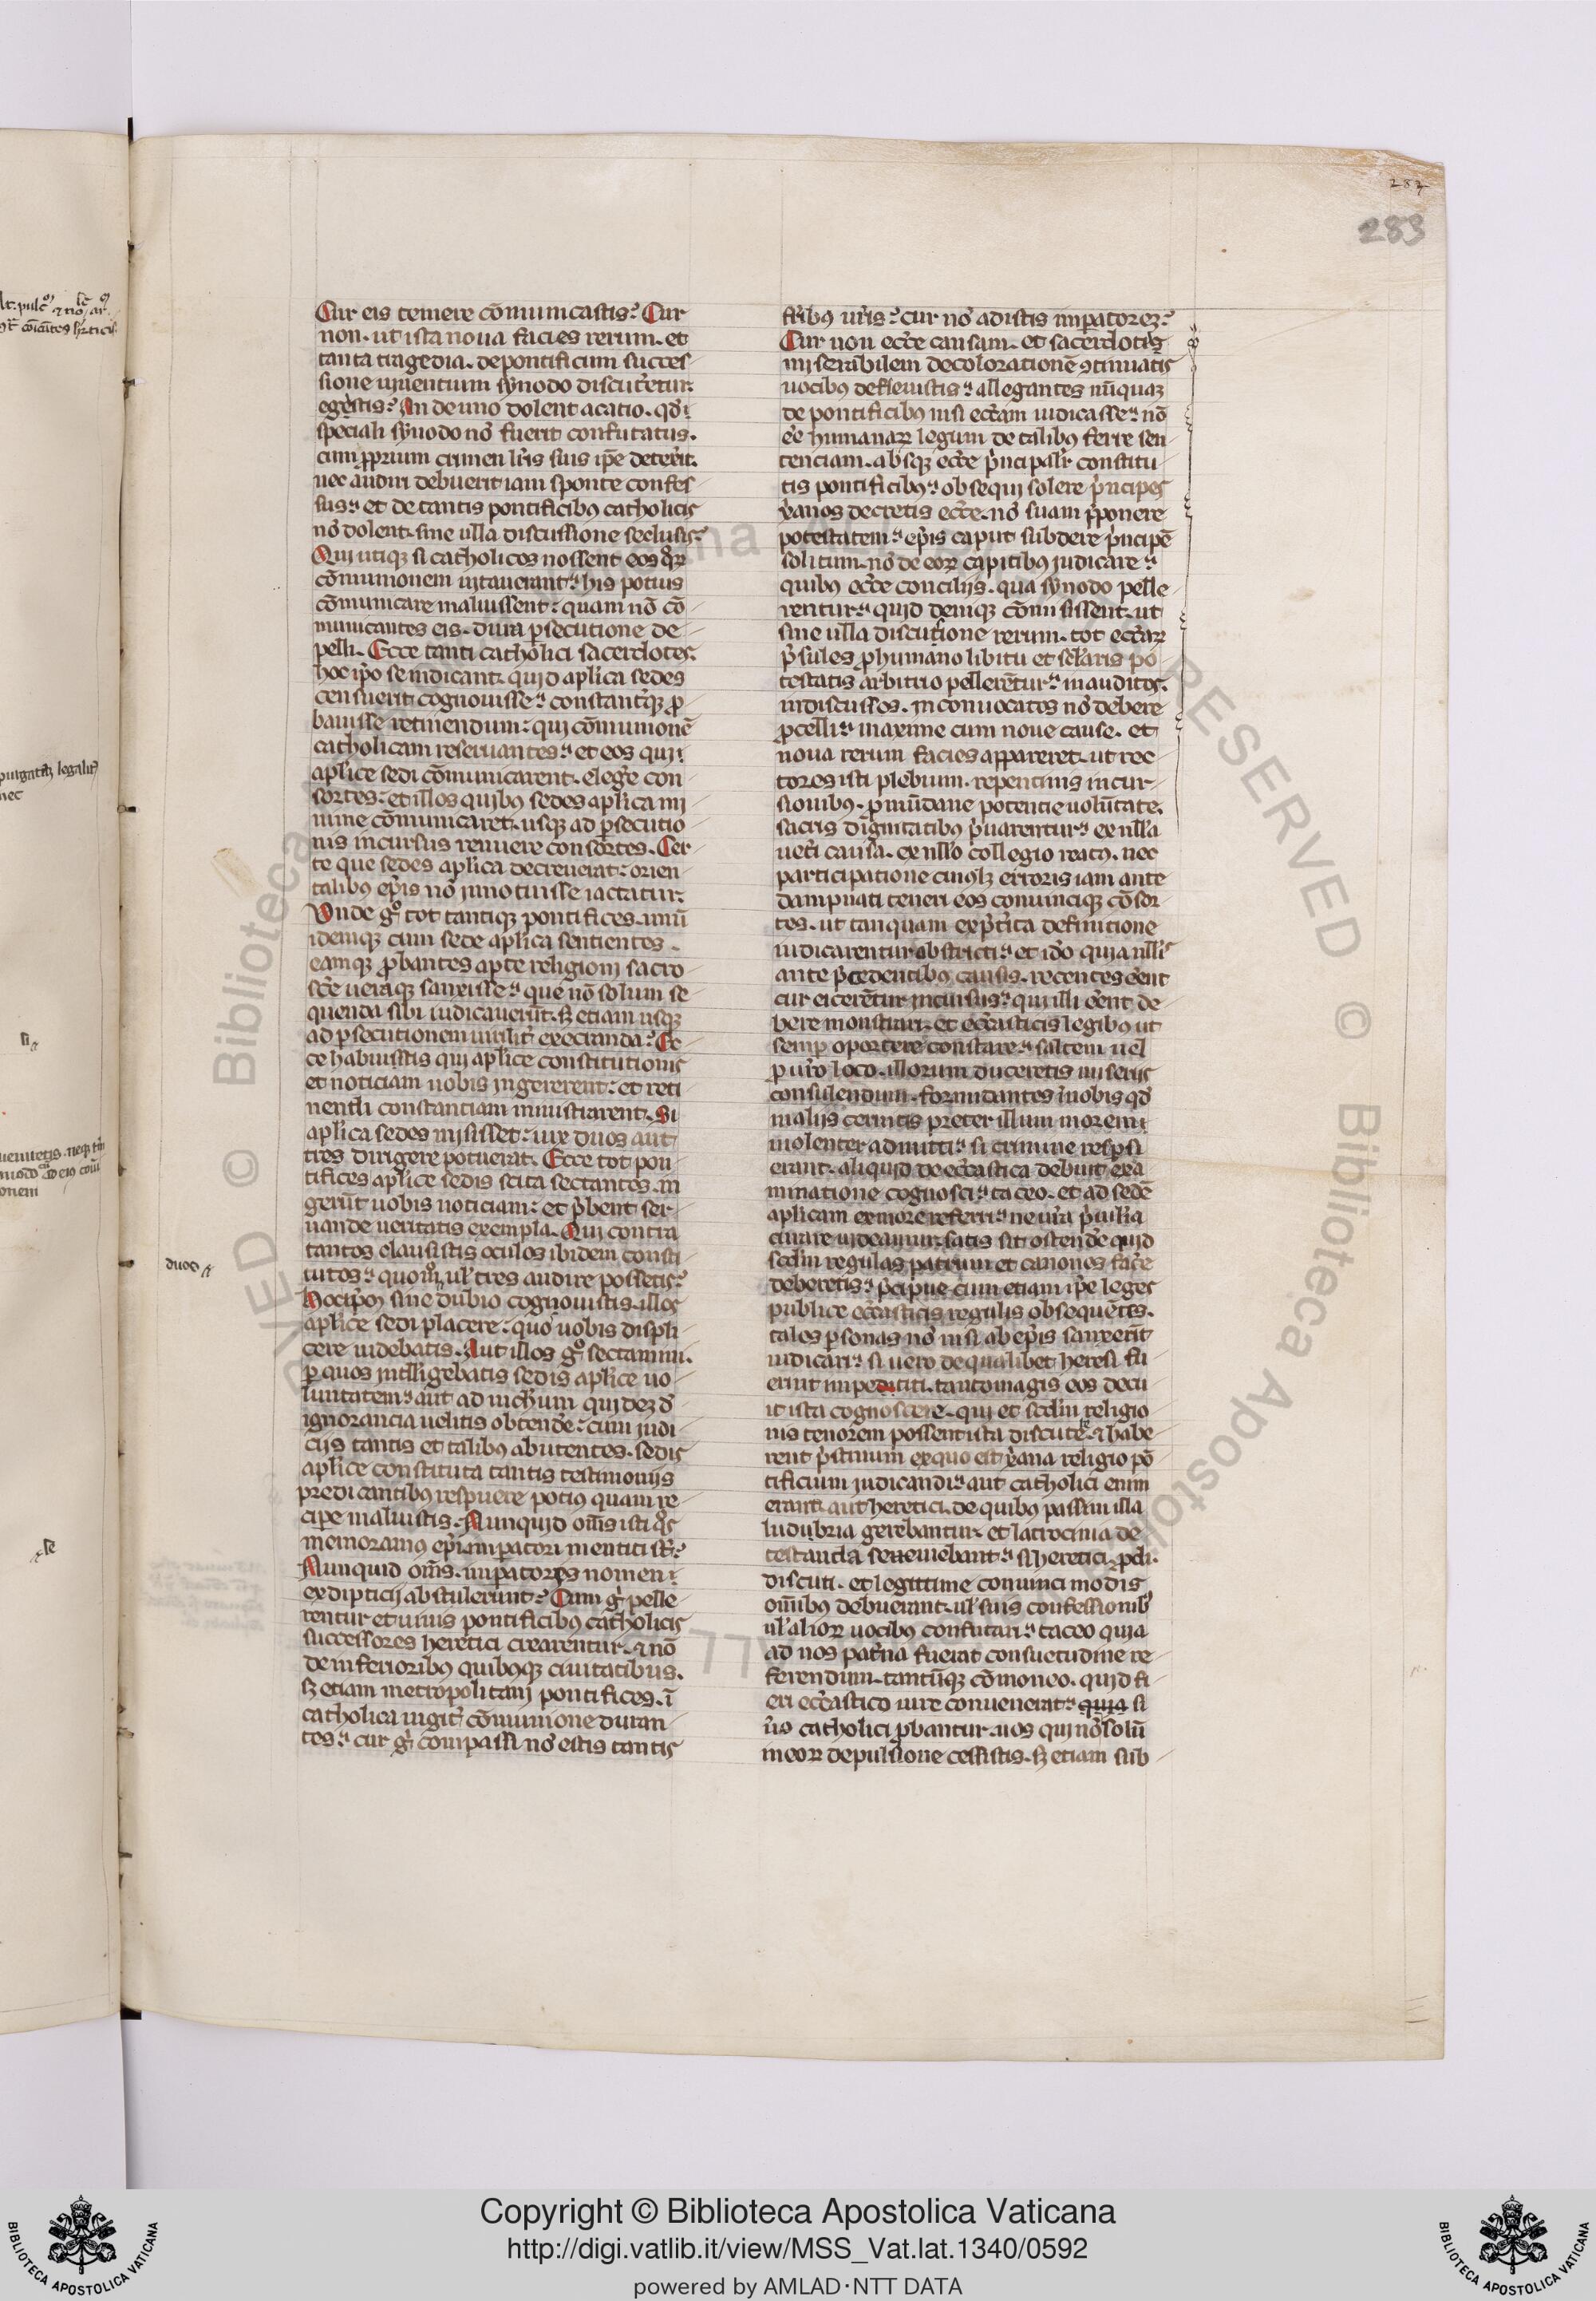 283
283
Cur eis temere cōmunicastis? Cur
non. ut ista noua facies rerum. et
tanta tragedia. de pontificum succes
sione uiuentum synodo discut'etur.
egistis? An de uno dolent acatio. qd̓
speciali synodo nō fuerit confutatus.
cum ꝓprium crimen lr̄is suis ip̄e detex̄it.
nec audiri debuerit iam sponte confes
sus? et de tantis pontificibꝰ catholicis
nō dolent. sine ulla discussione seclusis?
Qui utiqꝫ si catholicos nossent eos q̓ꝝ
cōmunionem uitauerant? his potius
cōmunicare maluissent. quam nō cō
municantes eis. dura ꝑsecutione de
pelli. Ecce tanti catholici sacerdotes.
hoc ip̄o se indicant. quid apl'ica sedes
censuerit cognouisse. constant'qꝫ ꝓ
bauisse retinendum. qui cōmunionē
catholicam reseruantes. et eos qui
apl'ice sedi cōmunicarent. eleg'e con
sortes. et illos quibꝰ sedes apl'ica mi
nime cōmunicaret. usqꝫ ad ꝑsecutio
nis incursus renuere consortes. Cer
te que sedes apl'ica decreuerat. orien
talibꝰ ep̄is nō innotuisse iactatur.
Vnde gͦ tot tantiqꝫ pontifices. unū
idemqꝫ cum sede apl'ica sentientes.
eamqꝫ ꝓbantes apte religioni sacro
sc̄e ueraqꝫ sanxisse. que nō solum se
quenda sibi iudicauerūt. sꝫ etiam usqꝫ
ad ꝑsecutionem uirilit̓ exectanda? Ec
ce habuistis qui apl'ice constitutionis
et noticiam uobis ingererent. et reti
nendi constantiam ministrarent. Si
apl'ica sedes misisset. uix duos aut
tres dirigere potuerat. Ecce tot pon
tifices apl'ice sedis scita sectantes. in
gerūt uobis noticiam. et p̄bent ser
uande ueritatis exempla. Qui contra
tantos clausistis oculos ibidem consti
duos
tutos. quoꝝ ul' tres audire possetis?
Hoc ip̄o sine dubio cognouistis. illos
apl'ice sedi placere. quos uobis displi
cere uidebatis. Aut illos gͦ sectamini.
ꝑ quos intelligebatis sedis apl'ice uo
luntatem. aut ad nichilum quidez d'
ignorancia uelitis obtend'e. cum iudi
ciis tantis et talibus abutentes. sedis
apl'ice constituta tantis testimoniis
predicantibꝰ respuere potius quam re
cipe maluistis. Nunquid om̄s isti q̓s
memoramꝰ ep̄i impatori mentiti st̄?
Nunquid om̄s. impatores nomen
ex diptici abstulerunt? Cum g̓ pelle
rentur et uiuis pontificibꝰ catholicis
successores heretici crearentur. ⁊ nō
de inferioribꝰ quibusqꝫ ciuitatibus.
sꝫ etiam metropolitani pontifices. ī
catholica iugit̓ cōmunione duran
tes. cur g̓ compassi nō estis tantis
fr̄ibꝰ ur̄is? cur nō adistis impatorez?
Cur non ecc̄e causam. et sacerdotis
miserabilem decolorationē ꝯtinuatis
uocibꝰ defleuistis. allegantes nūquaꝫ
de pontificibꝰ nisi ecc̄am iudicasse. nō
e̓e humanaꝝ legum de talibꝰ ferre sen
tenciam. absqꝫ ecc̄e p̓ncipalit̓ constitu
tis pontificibꝰ. obsequi solere p̓ncipes
xp̄ianos decretis ecc̄e. nō suam p̄ponere
potestatem. ep̄is caput subdere p̓ncipē
solitum. nō de eoꝝ capitibꝰ iudicare.
quibꝰ ecc̄e conciliis. qua synodo pelle
rentur. quid deniqꝫ cōmisissent. ut
sine ulla discutione rerum. tot ecc̄aꝝ
p̄sules ꝓ humano libitu et sc̄laris po
testatis arbitrio pellerētur. inauditos.
indiscussos. inconuocatos nō debere
ꝓcelli. maxime cum noue cause. et
noua rerum facies appareret. ut rec
tores isti plebium. repentinis incur
sionibꝰ. ꝑ mūdane potentie uolūtate.
sacris dignitatibꝰ p̓uarentur. ex nll'a
uet̓i causa. ex nllo collegio reatꝰ. nec
participatione cuiuslꝫ erroris iam ante
dampnati teneri eos conuinciqꝫ cōsor
tes. ut tanquam ex p̄t'ita definitione
iudicarentur obstricti. et id̓o quia nll'is
ante p̄cedentibꝰ causis. recentes e̓ent
cur eicerētur incursus. qui illi e̓ent de
bere monstrari. et ecc̄asticis legibꝰ ut
semp oportere constare. saltem uel
ꝑ ur̄o loco. illorum duceretis miseriis
consulendum. formidantes uobis qd̓
maliis cernitis preter illum morem
uiolenter admitti. si crimine respsi
erant. aliquid de ecc̄astica debuit exa
minatione cognosci. taceo. et ad sedē
apl'icam ex more referri. ne ur̄a p̓uil'ia
curare uideamur. satis sit ostend'e quid
sc̄dm regulas patrum et canonos fac̓e
deberetis. p̄cipue cum etiam ip̄e leges
publice ecc̄asticis regulis obsequētes.
tales ꝑsonas nō nisi ab ep̄is sanxerīt
iudicari. si uero de qualibet heresi fu
erint impetiti. tantomagis eos decu
it ista cognoscere. qui et sc̄dm religio
nis tenorem possent ista discut'e. ⁊ habe
rent p̓stinum ex quo est xp̄iana religio pō
tificium iudicandi. aut catholici enim
erant. aut heretici. de quibꝰ passim illa
ludubria gerebantur. et latrocinia de
testanda seuiebant. si heretici. ꝓdi.
discuti. et legittime conuinci modis
om̄ibꝰ debuerant. ul' suis confessionibꝰ
ul' alioꝝ uocibꝰ confutari. taceo quia
ad nos pat'na fuerat consuetudine re
ferendum. tantūqꝫ cōmoneo. quid fi
eri ecc̄astico iure conuenerat. quia si
ūo catholici ꝓbantur. uos qui nō solū
in eoꝝ depulsione cessistis. sꝫ etiam sub
Copyright © Biblioteca Apostolica Vaticana
http://digi.vatlib.it/view/MSS_Vat.lat.1340/0592
powered by AMLAD·NTT DATA
BIBLIOTECA APOSTOLICA VATICANA
BIBLIOTECA APOSTOLICA VATICANA